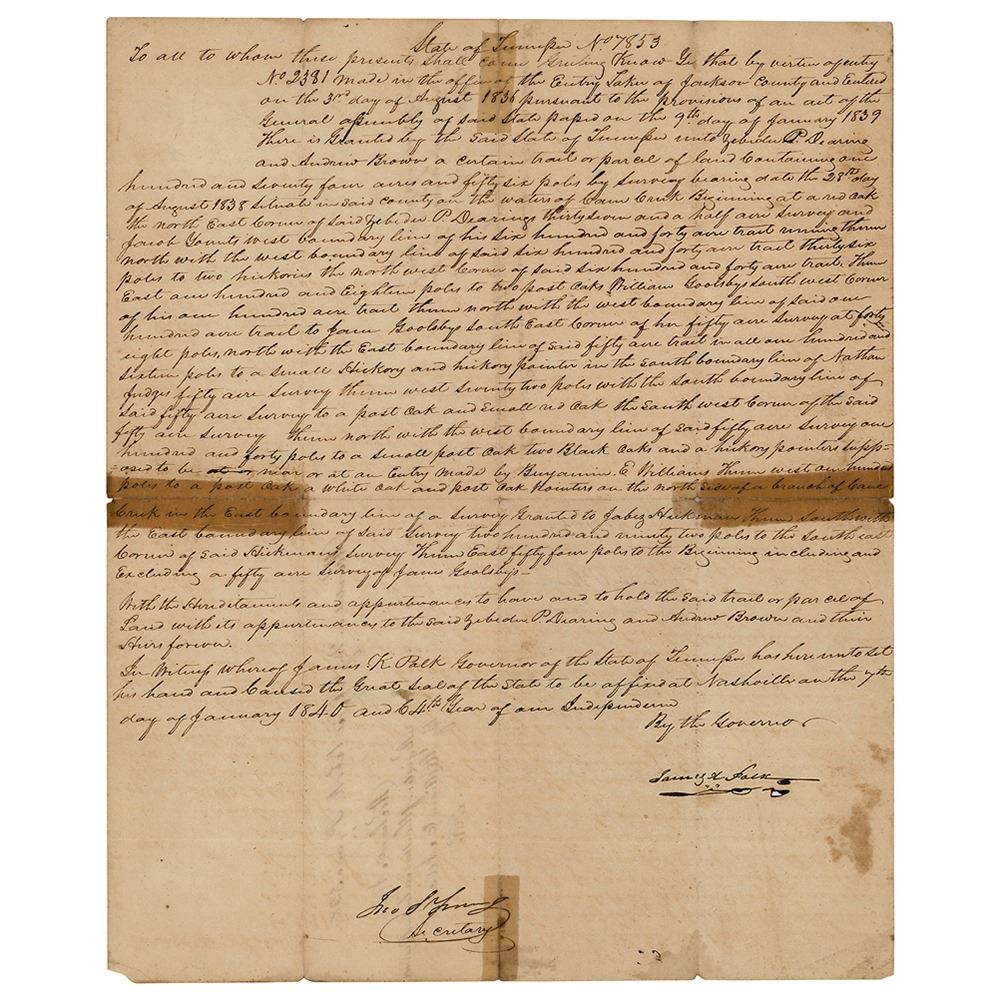 State of Tennessee No 7853
To all to whom these presents shall come Greeting Know Ye that by virtue of entry
No 2381 made in the office of the Entry Taker of Jackson County and Entered
on the 3rd day of August 1836 pursuant to the provisions of an act of the
General assembly of said State passed on the 9th day of January 1839
There is Granted by the Said State of Tennessee unto Zebedee P. Dearing
and Andrew Brown a certain trait or parcel of land Containing one
hundred and Seventy four acres and fifty six poles by Survey bearing date the 28th day
of August 1838 Situate in Said County on the waters of Cane Creek Beginning at a red oak
the north East Corner of Said Zebedee P. Dearings thirty Seven and a half acre Survey and
Jacob Younts west boundary line of his Six hundred and forty acre trait runing thence
north with the west boundary line of said Six hundred and forty acre trait thirty six
poles to two hickories the north west Corner of said Six hundred and forty acre trait. Thence
East one hundred and Eighteen poles to two post oaks William Goolsbys South west Corner
of his one hundred acre trait thence north with the west boundary line of said one
hundred acre trait to Jane Goolsbys South East Corner of her fifty acre Survey at forty
eight poles, north with the East boundary line of Said fifty acre trait in all one hundred and
sixteen poles to a small Hickory and hickory pointer in the South boundary line of Nathan
Judges fifty acre Survey thence west Seventy two poles with the South boundary line of
Said fifty acre Survey to a post oak and Small red oak the South west Corner of the Said
fifty acre Survey Thence north with the west boundary line of Said fifty acre Survey one
hundred and forty poles to a small post oak two Black oaks and a hickory pointers supp-
-osed to be at or near or at an Entry made by Benjamin E Williams Thence west one hundred
poles to a post oak a white oak and post oak Pointers on the north Side of a branch of Cane
Creek in the East boundary line of a Survey Granted to Jabez Hickman Thence South with
the East boundary line of Said Survey two hundred and ninety two poles to the South east
Corner of Said Hickmans Survey Thence East fifty four poles to the Beginning including and
Excluding a fifty acre Survey of Jane Goolsbys—
With the Hereditaments and appurtenances to have and to hold the Said trait or parcel of
Land with its appurtenances to the Said Zebedee P. Dearing and Andrew Brown and their
Heirs forever.
In Witness whereof James K Polk Governor of the State of Tennessee has here unto Set
his hand and Caused the Great Seal of the State to be affixed at Nashville on the 7th
day of January 1840 and 64th Year of our Independence
By the Governor
James K Polk
Jno S. Young
Secretary